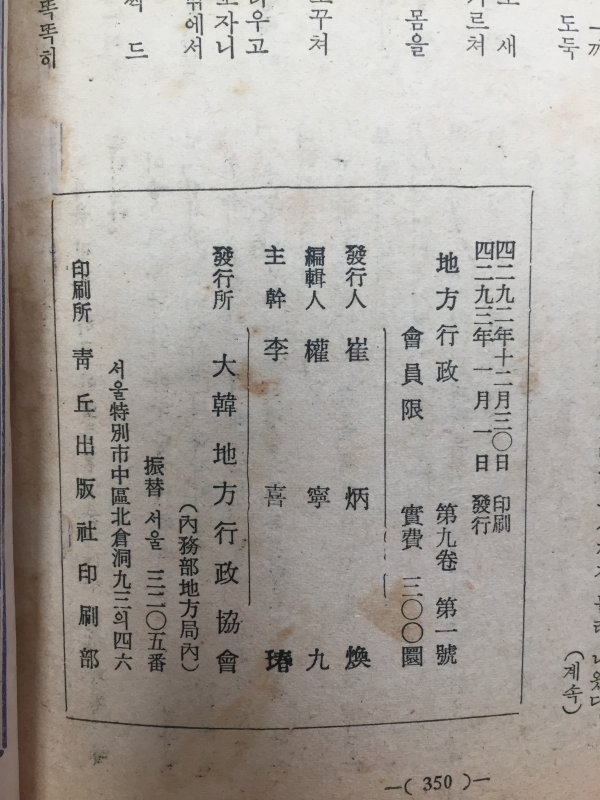 도둑
새
가르쳐
몸을
꾸쳐
우고
자니
에서
드
똑똑히
(계속)
四二九二年十二月三〇日 印刷
四二九三年一月一日 發行
地方行政 第九卷 第一號
會員限 實費 三〇〇圜
發行人 崔炳煥
編輯人 權寧九
主幹 李喜瑃
發行所 大韓地方行政協會
(內務部地方局內)
振替 서울 三二〇五番
서울特別市中區北倉洞九三의四六
印刷所 靑丘出版社印刷部
—( 350 )—